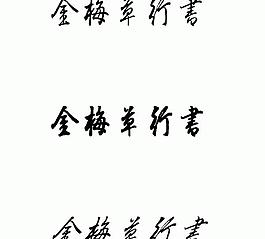 金梅草行書
金梅草行書
金梅草行書